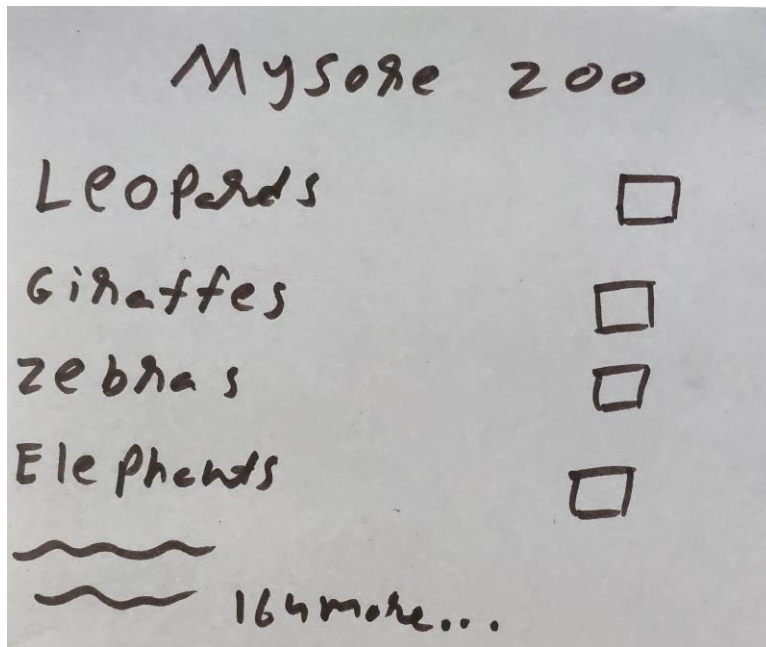 Mysore zoo
Leopards
Giraffes
Zebras
Elephants
164 more...